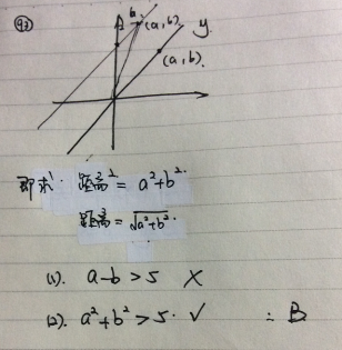 93
(a,b).
y
(a,b).
即求: 距离² = a²+b².
距离 = √a²+b².
(1). a-b > 5 X
(2). a²+b² > 5. √
∴ B